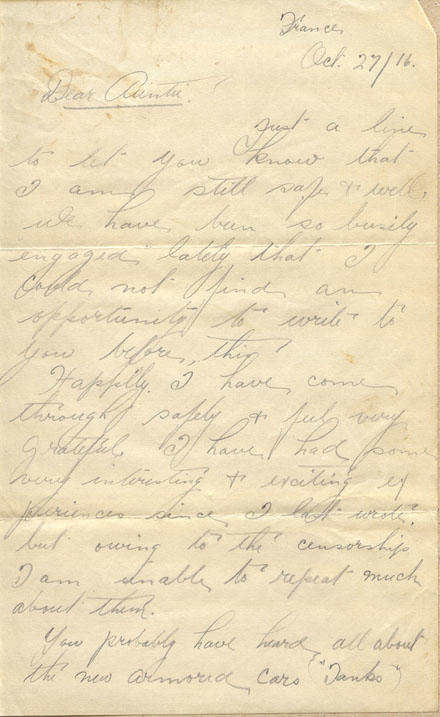 France
Oct. 27/16.
Dear Auntie!
Just a line
to let you know that
I am still safe & well
we have been so busily
engaged lately that I
could not find an
opportunity to write to
you before this!
Happily I have come
through safely & feel very
grateful. I have had some
very interesting & exciting ex
periences since I last wrote.
but owing to the censorship
I am unable to repeat much
about them.
You probably have heard all about
the new armored cars ("Tanks")